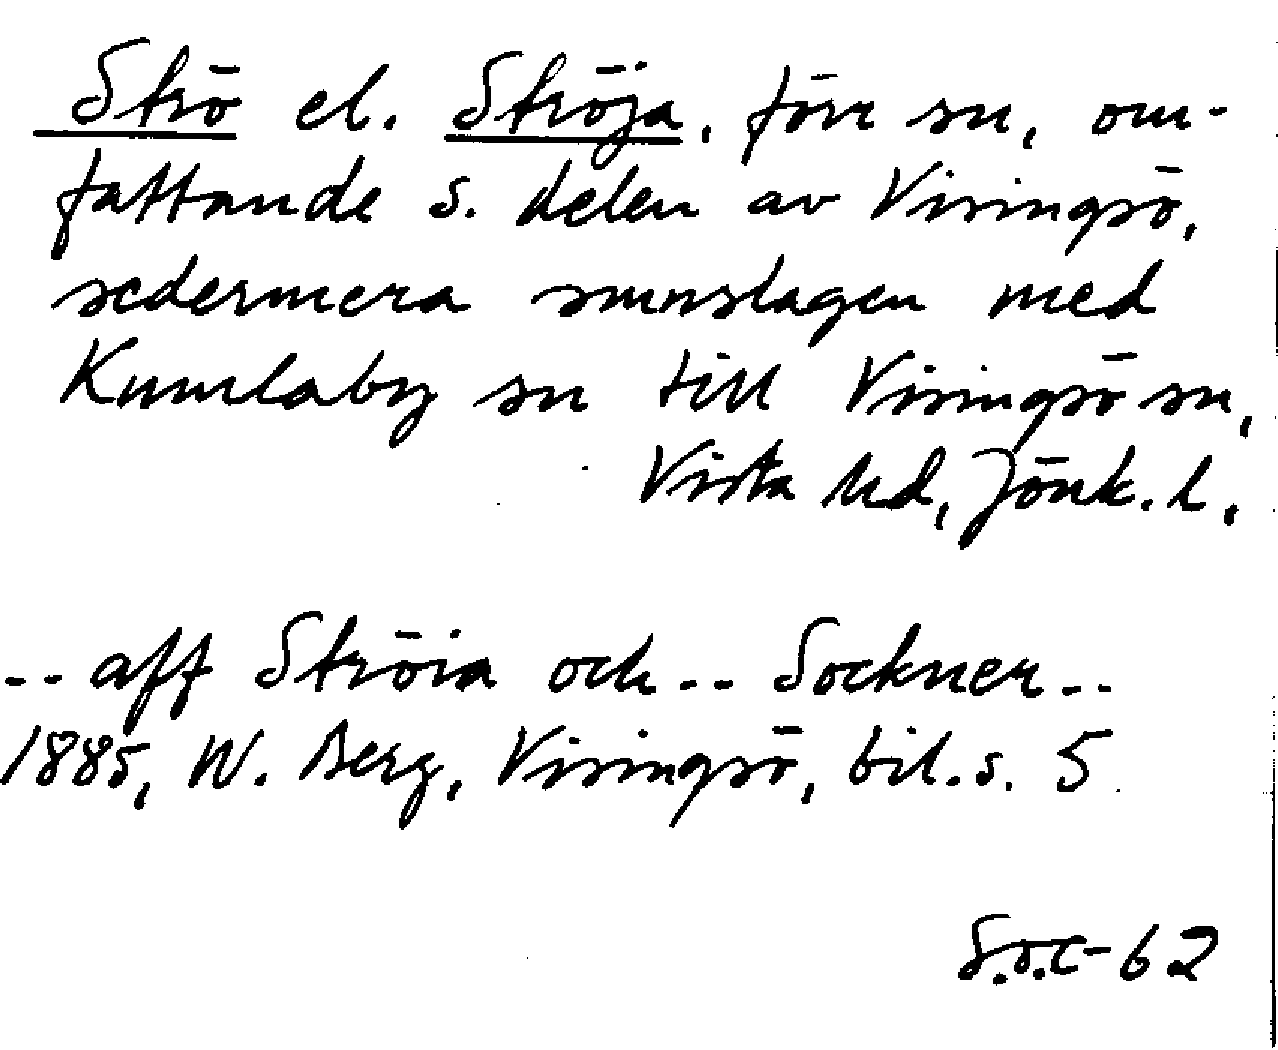 Strö el. Ströja, förr sn, om-
fattande s. delen av Visingsö,
sedermera smnslagen med
Kumlaby sn till Visingsö sn,
Vista hd, Jönk. l.
-- aff Ströia och -- Sockner --
1885, W. Berg, Visingsö, bil. s. 5
S.ö.C-62